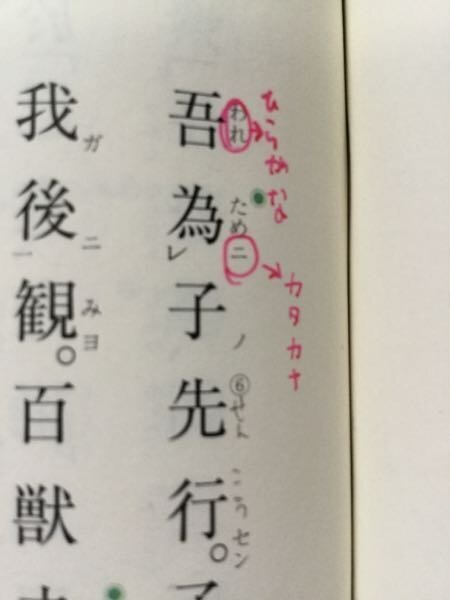 吾為子先行。子
われ ためニ ノ ⑥せん こうセン
レ
ひらがな
カタカナ
我後観。百獣
ガ ニ みヨ
一